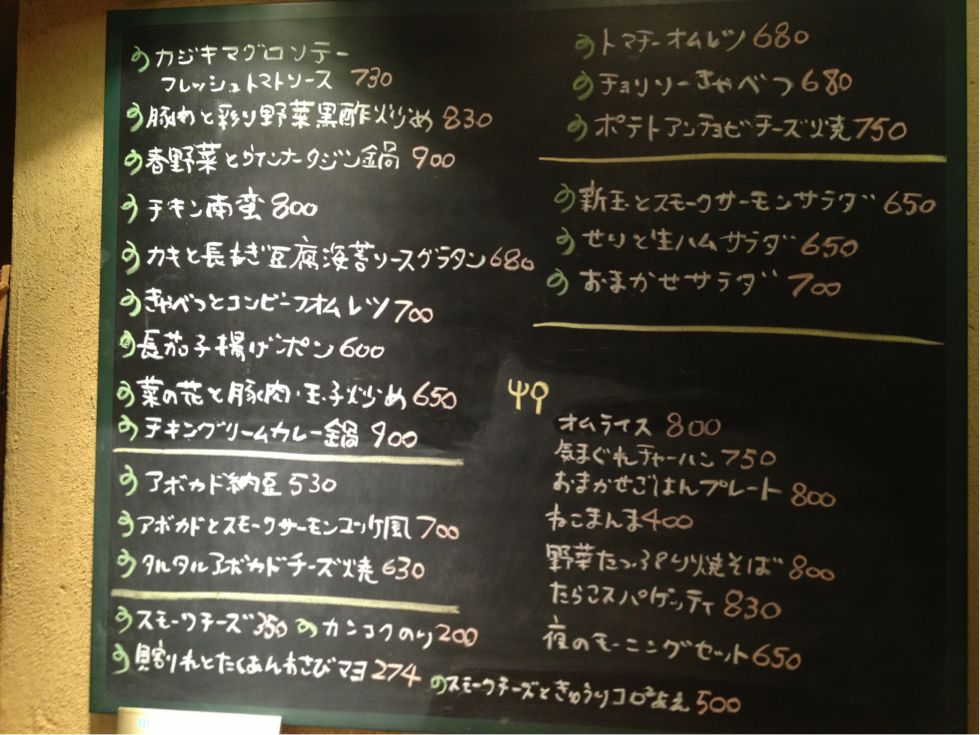 カジキマグロソテー
フレッシュトマトソース 730
豚肉と彩り野菜黒酢炒め 830
春野菜とウインナータジン鍋 900
チキン南蛮 800
カキと長ねぎ豆腐海苔ソースグラタン 680
きゃべつとコンビーフオムレツ 700
長茄子揚げポン 600
菜の花と豚肉・玉子炒め 650
チキンクリームカレー鍋 900
アボカド納豆 530
アボカドとスモークサーモンユッケ風 700
タルタルアボカドチーズ焼 630
スモークチーズ 350 カンコクのり 200
貝割れとたくあんわさびマヨ 274
スモークチーズときゅうり 500
トマチーオムレツ 680
チョリソーきゃべつ 680
ポテトアンチョビチーズ焼 750
新玉とスモークサーモンサラダ 650
せりと生ハムサラダ 650
おまかせサラダ 700
オムライス 800
気まぐれチャーハン 750
おまかせごはんプレート 800
ねこまんま 400
野菜たっぷり焼そば 800
たらこスパゲッティ 830
夜のモーニングセット 650